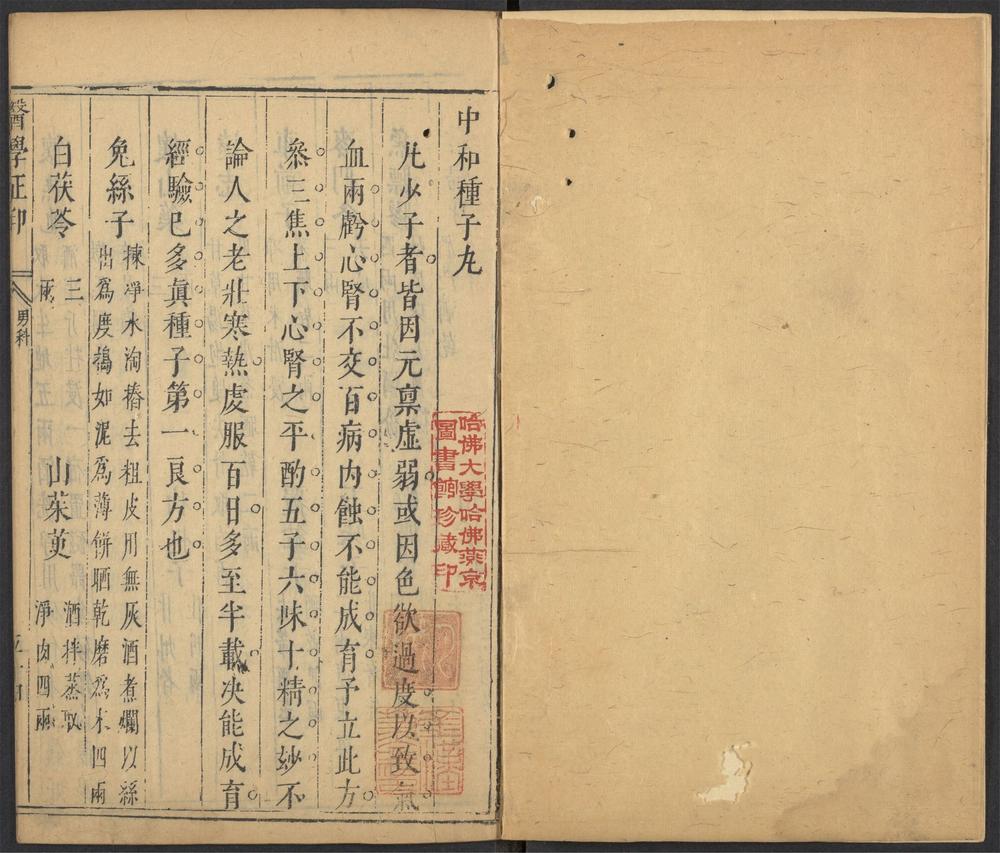 中和種子丸
凡少子者皆因元禀虛弱或因色欲過度以致氣
血兩虧心腎不交百病内蝕不能成育予立此方
叅三焦上下心腎之平酌五子六味十精之妙不
論人之老壯寒熱虔服百日多至半載决能成育
經驗已多眞種子第一良方也
兔絲子 揀凈水淘舂去粗皮用無灰酒煮爛以絲
出爲度搗如泥爲薄餅晒乾磨爲末四兩
白茯苓 三
兩
山茱萸 酒拌蒸取
淨肉四兩
醫學正印
男科
哈佛大學哈佛燕京
圖書館珍藏印